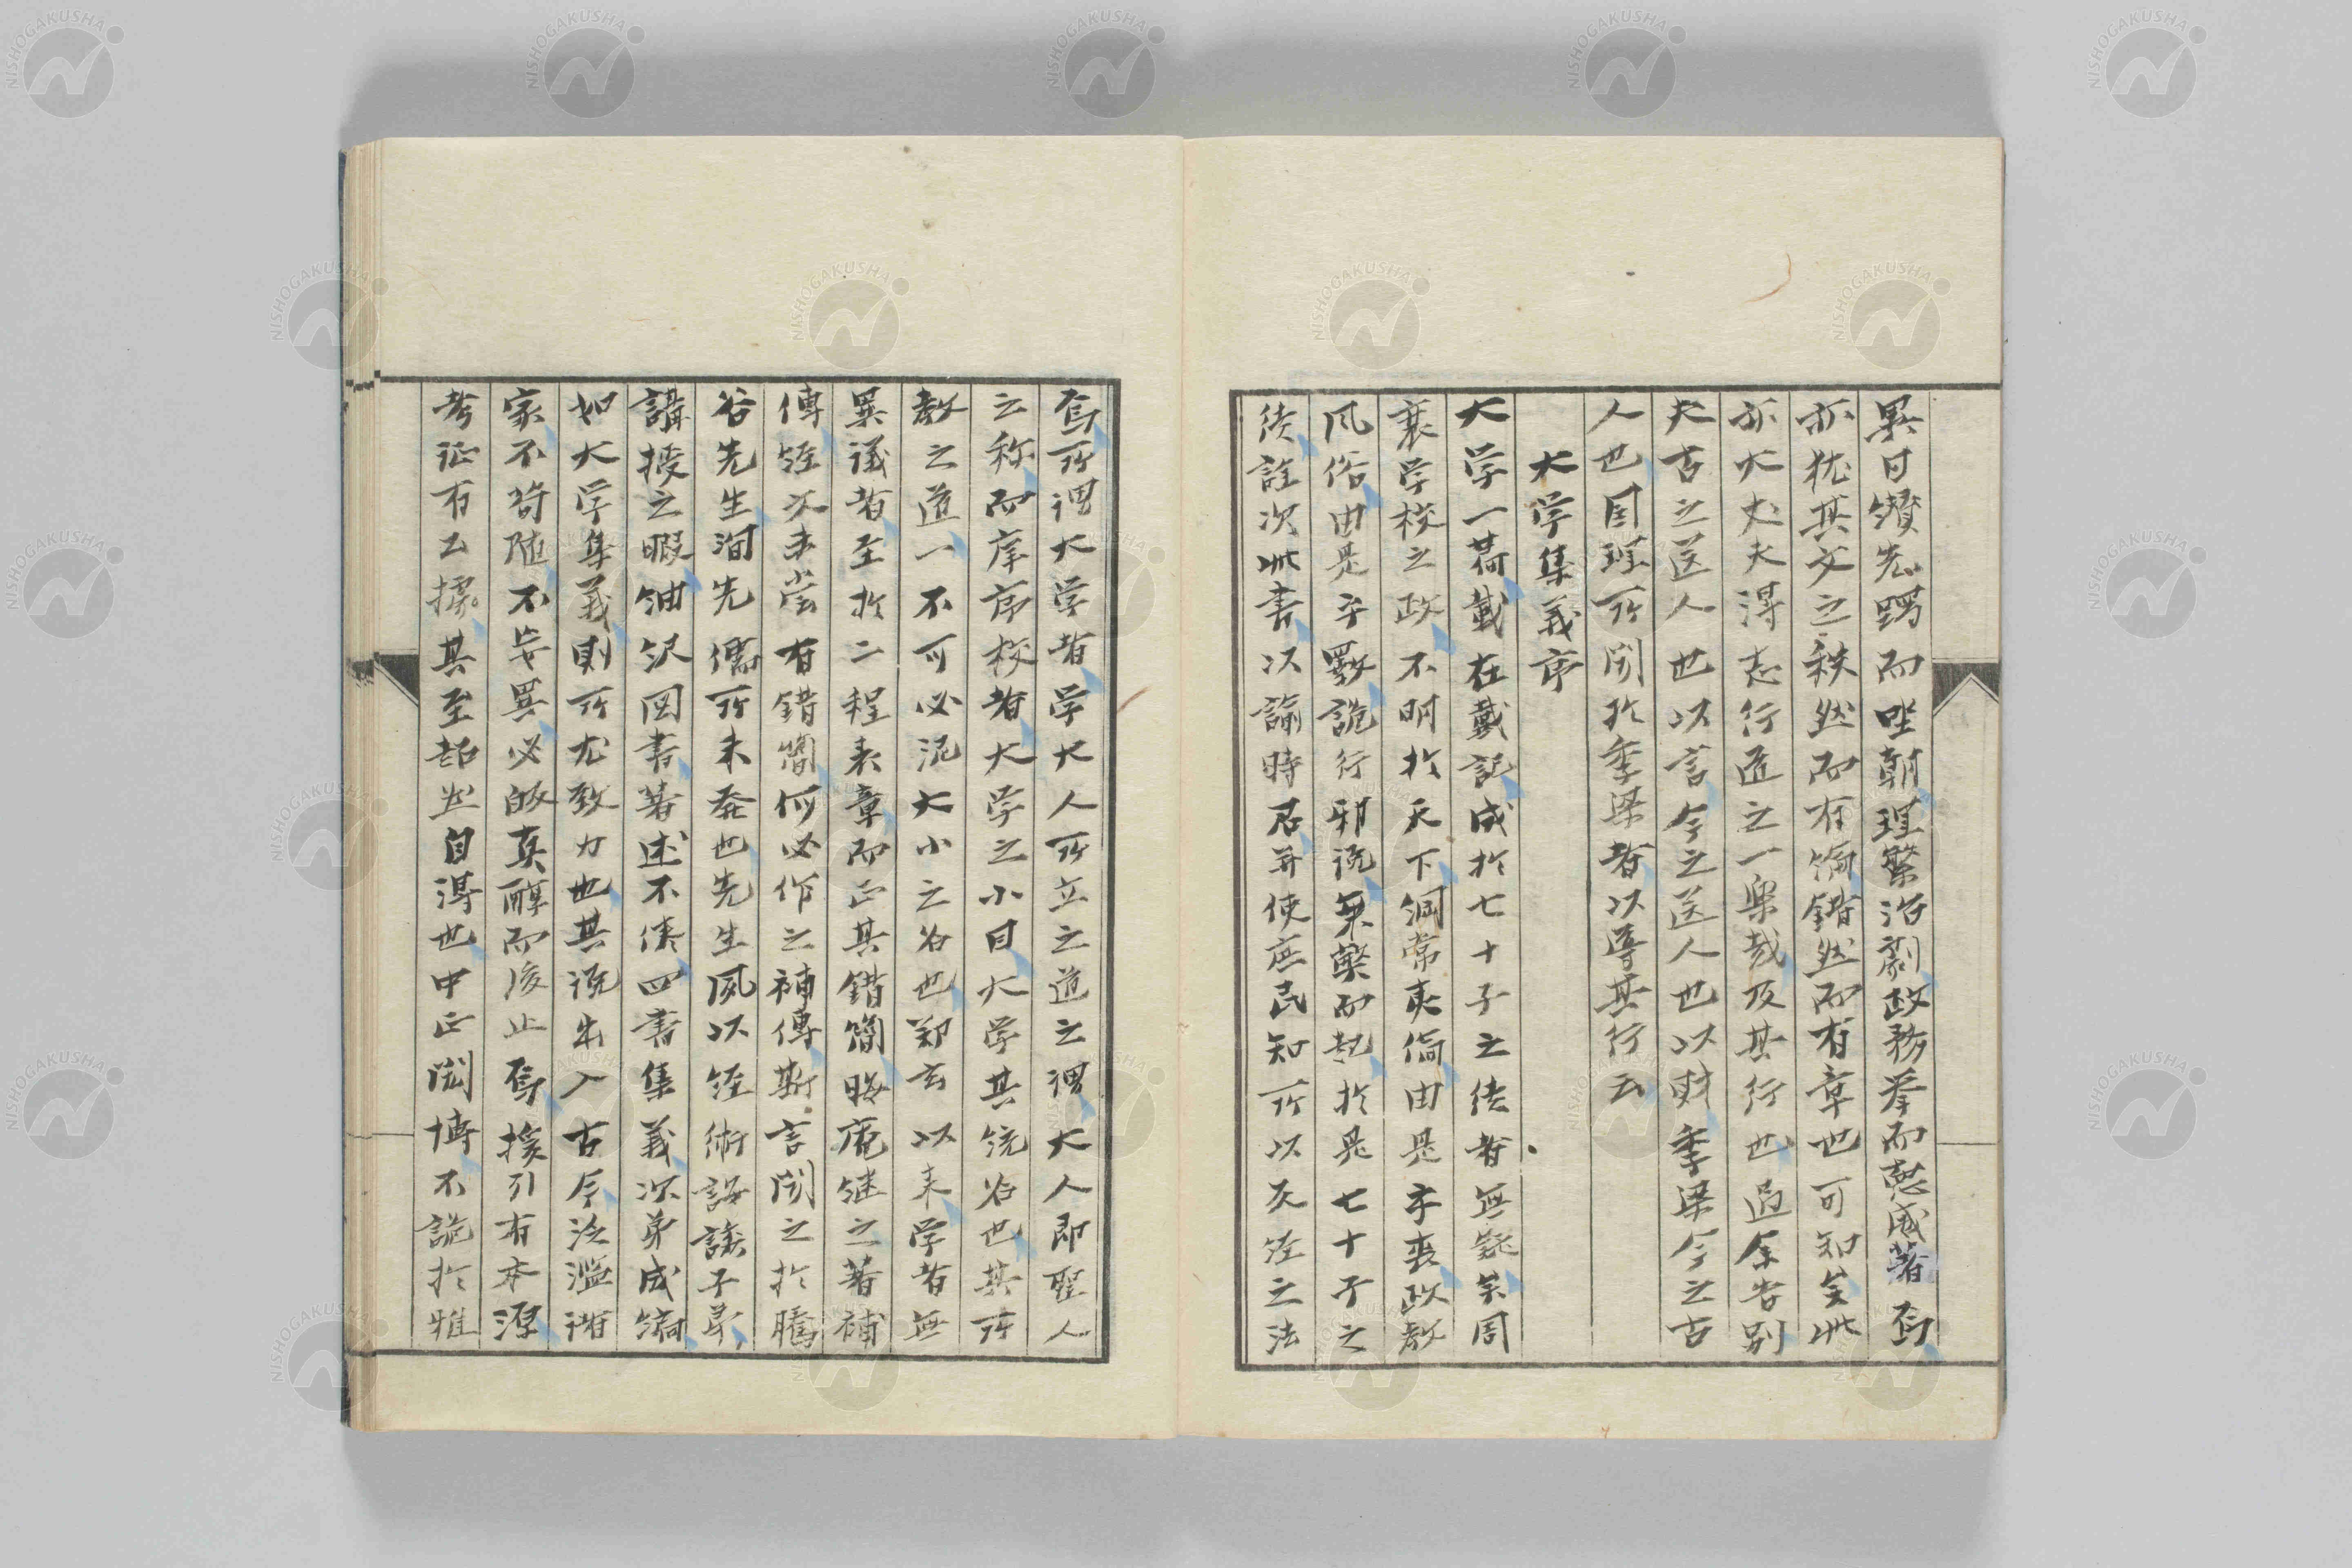 異日鑚先蹤而坐朝理繁治劇政務挙而憲咸著焉
亦猶其文之秩然而有倫錯然而有章也可知矣此
亦大丈夫得志行道之一楽哉及其行也過余告別
夫古之送人也以言今之送人也以財季梁今之古
人也因理所聞於季梁者以導其行云
大学集義序
大学一篇載在戴記成於七十子之徒者無疑矣周
衰学校之政不明於天下綱常夷倫由是乎喪政教
風俗由是乎斁詭行邪説乗繁而起於是七十子之
徒詮次此書以諭時君并使庶民知所以及經之法
焉所謂大学者学大人所立之道之謂大人即聖人
之称而庠序校者大学之小目大学其統名也其所
教之道一不可必泥大小之名也鄭玄以来学者無
異議者至於二程表章而正其錯簡晦庵継之著補
傳經文未嘗有錯簡何必作之補傳斯言聞之於騰
谷先生洵先儒所未発也先生夙以經術誘諸子弟
講授之暇紬沢図書著述不倦四書集義次第成編
如大学集義則所尤致力也其説出入古今泛濫諸
家不苟随不妄異必皈真醇而後止焉援引有本源
考证有互據其至詣豈自得也中正閎博不詭於雅